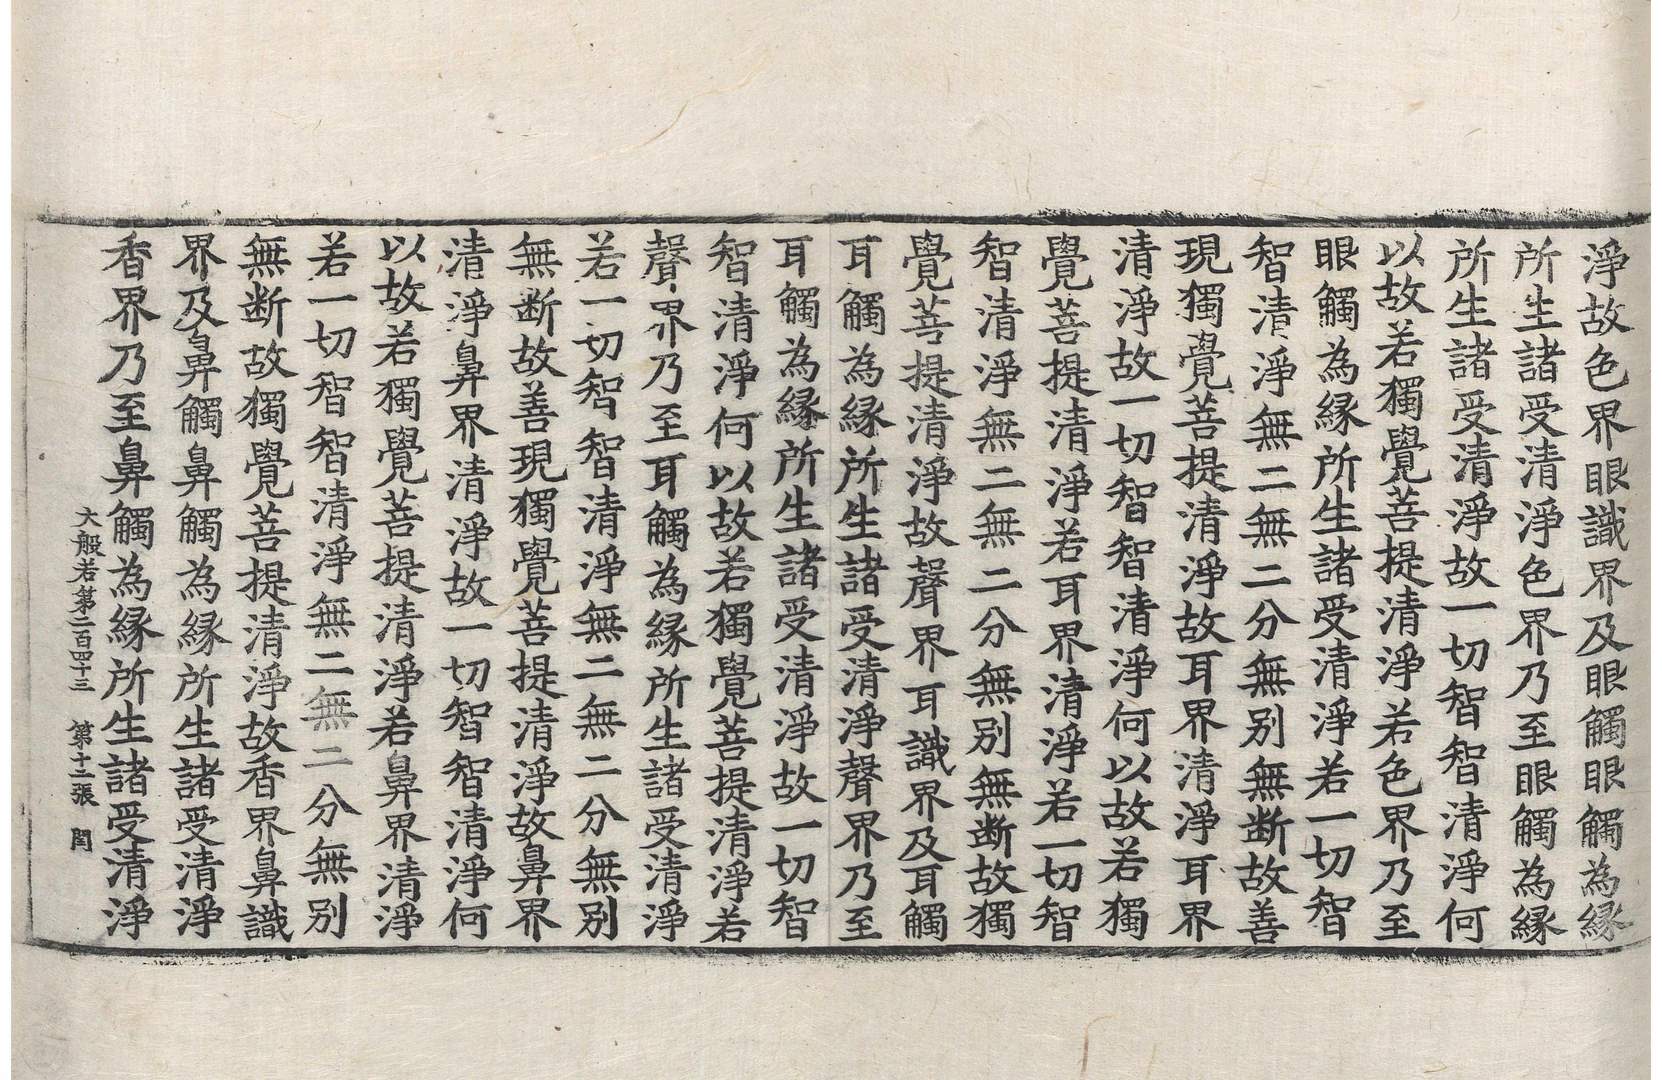 淨故色界眼識界及眼觸眼觸為縁
所生諸受清淨色界乃至眼觸為縁
所生諸受清淨故一切智智清淨何
以故若獨覺菩提清淨若色界乃至
眼觸為縁所生諸受清淨若一切智
智清淨無二無二分無别無断故善
現獨覺菩提清淨故耳界清淨耳界
清淨故一切智智清淨何以故若獨
覺菩提清淨若耳界清淨若一切智
智清淨無二無二分無别無断故獨
覺菩提清淨故聲界耳識界及耳觸
耳觸為縁所生諸受清淨聲界乃至
耳觸為縁所生諸受清淨故一切智
智清淨何以故若獨覺菩提清淨若
聲界乃至耳觸為縁所生諸受清淨
若一切智智清淨無二無二分無别
無断故善現獨覺菩提清淨故鼻界
清淨鼻界清淨故一切智智清淨何
以故若獨覺菩提清淨若鼻界清淨
若一切智智清淨無二無二分無别
無断故獨覺菩提清淨故香界鼻識
界及鼻觸鼻觸為縁所生諸受清淨
香界乃至鼻觸為縁所生諸受清淨
大般若第二百四十三 第十二張 閏